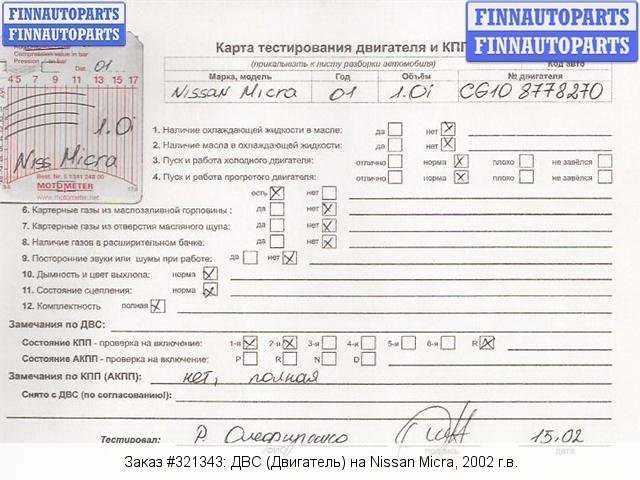 FINNAUTOPARTS FINNAUTOPARTS
FINNAUTOPARTS FINNAUTOPARTS
Compression value in bar
Pression en bar
Dat. 01
4 5 7 9 11 13 15 17
1.0i
Niss Micra
Best. Nr. 5 1341 248 00
MOTOMETER
www.motometer.net
Карта тестирования двигателя и КПП
(прикалывать к листу разборки автомобиля) Код авто
Марка, модель Год Объём № двигателя
Nissan Micra 01 1.0i CG10 8778270
1. Наличие охлаждающей жидкости в масле: да нет X
2. Наличие масла в охлаждающей жидкости: да нет X
3. Пуск и работа холодного двигателя: отлично норма X плохо не завёлся
4. Пуск и работа прогретого двигателя: отлично норма X плохо не завёлся
есть X нет
6. Картерные газы из маслозаливной горловины : да нет X
7. Картерные газы из отверстия масляного щупа: да нет X
8. Наличие газов в расширительном бачке: да нет X
9. Посторонние звуки или шумы при работе: да нет X
10. Дымность и цвет выхлопа: норма X
11. Состояние сцепления: норма X
12. Комплектность полная X
Замечания по ДВС:
Состояние КПП - проверка на включение: 1-я X 2-я X 3-я 4-я 5-я 6-я R X
Состояние АКПП - проверка на включение: P R N D
Замечания по КПП (АКПП): нет, полная
Снято с ДВС (по согласованию!):
Тестировал: Р. 15.02
подпись дата
Заказ #321343: ДВС (Двигатель) на Nissan Micra, 2002 г.в.